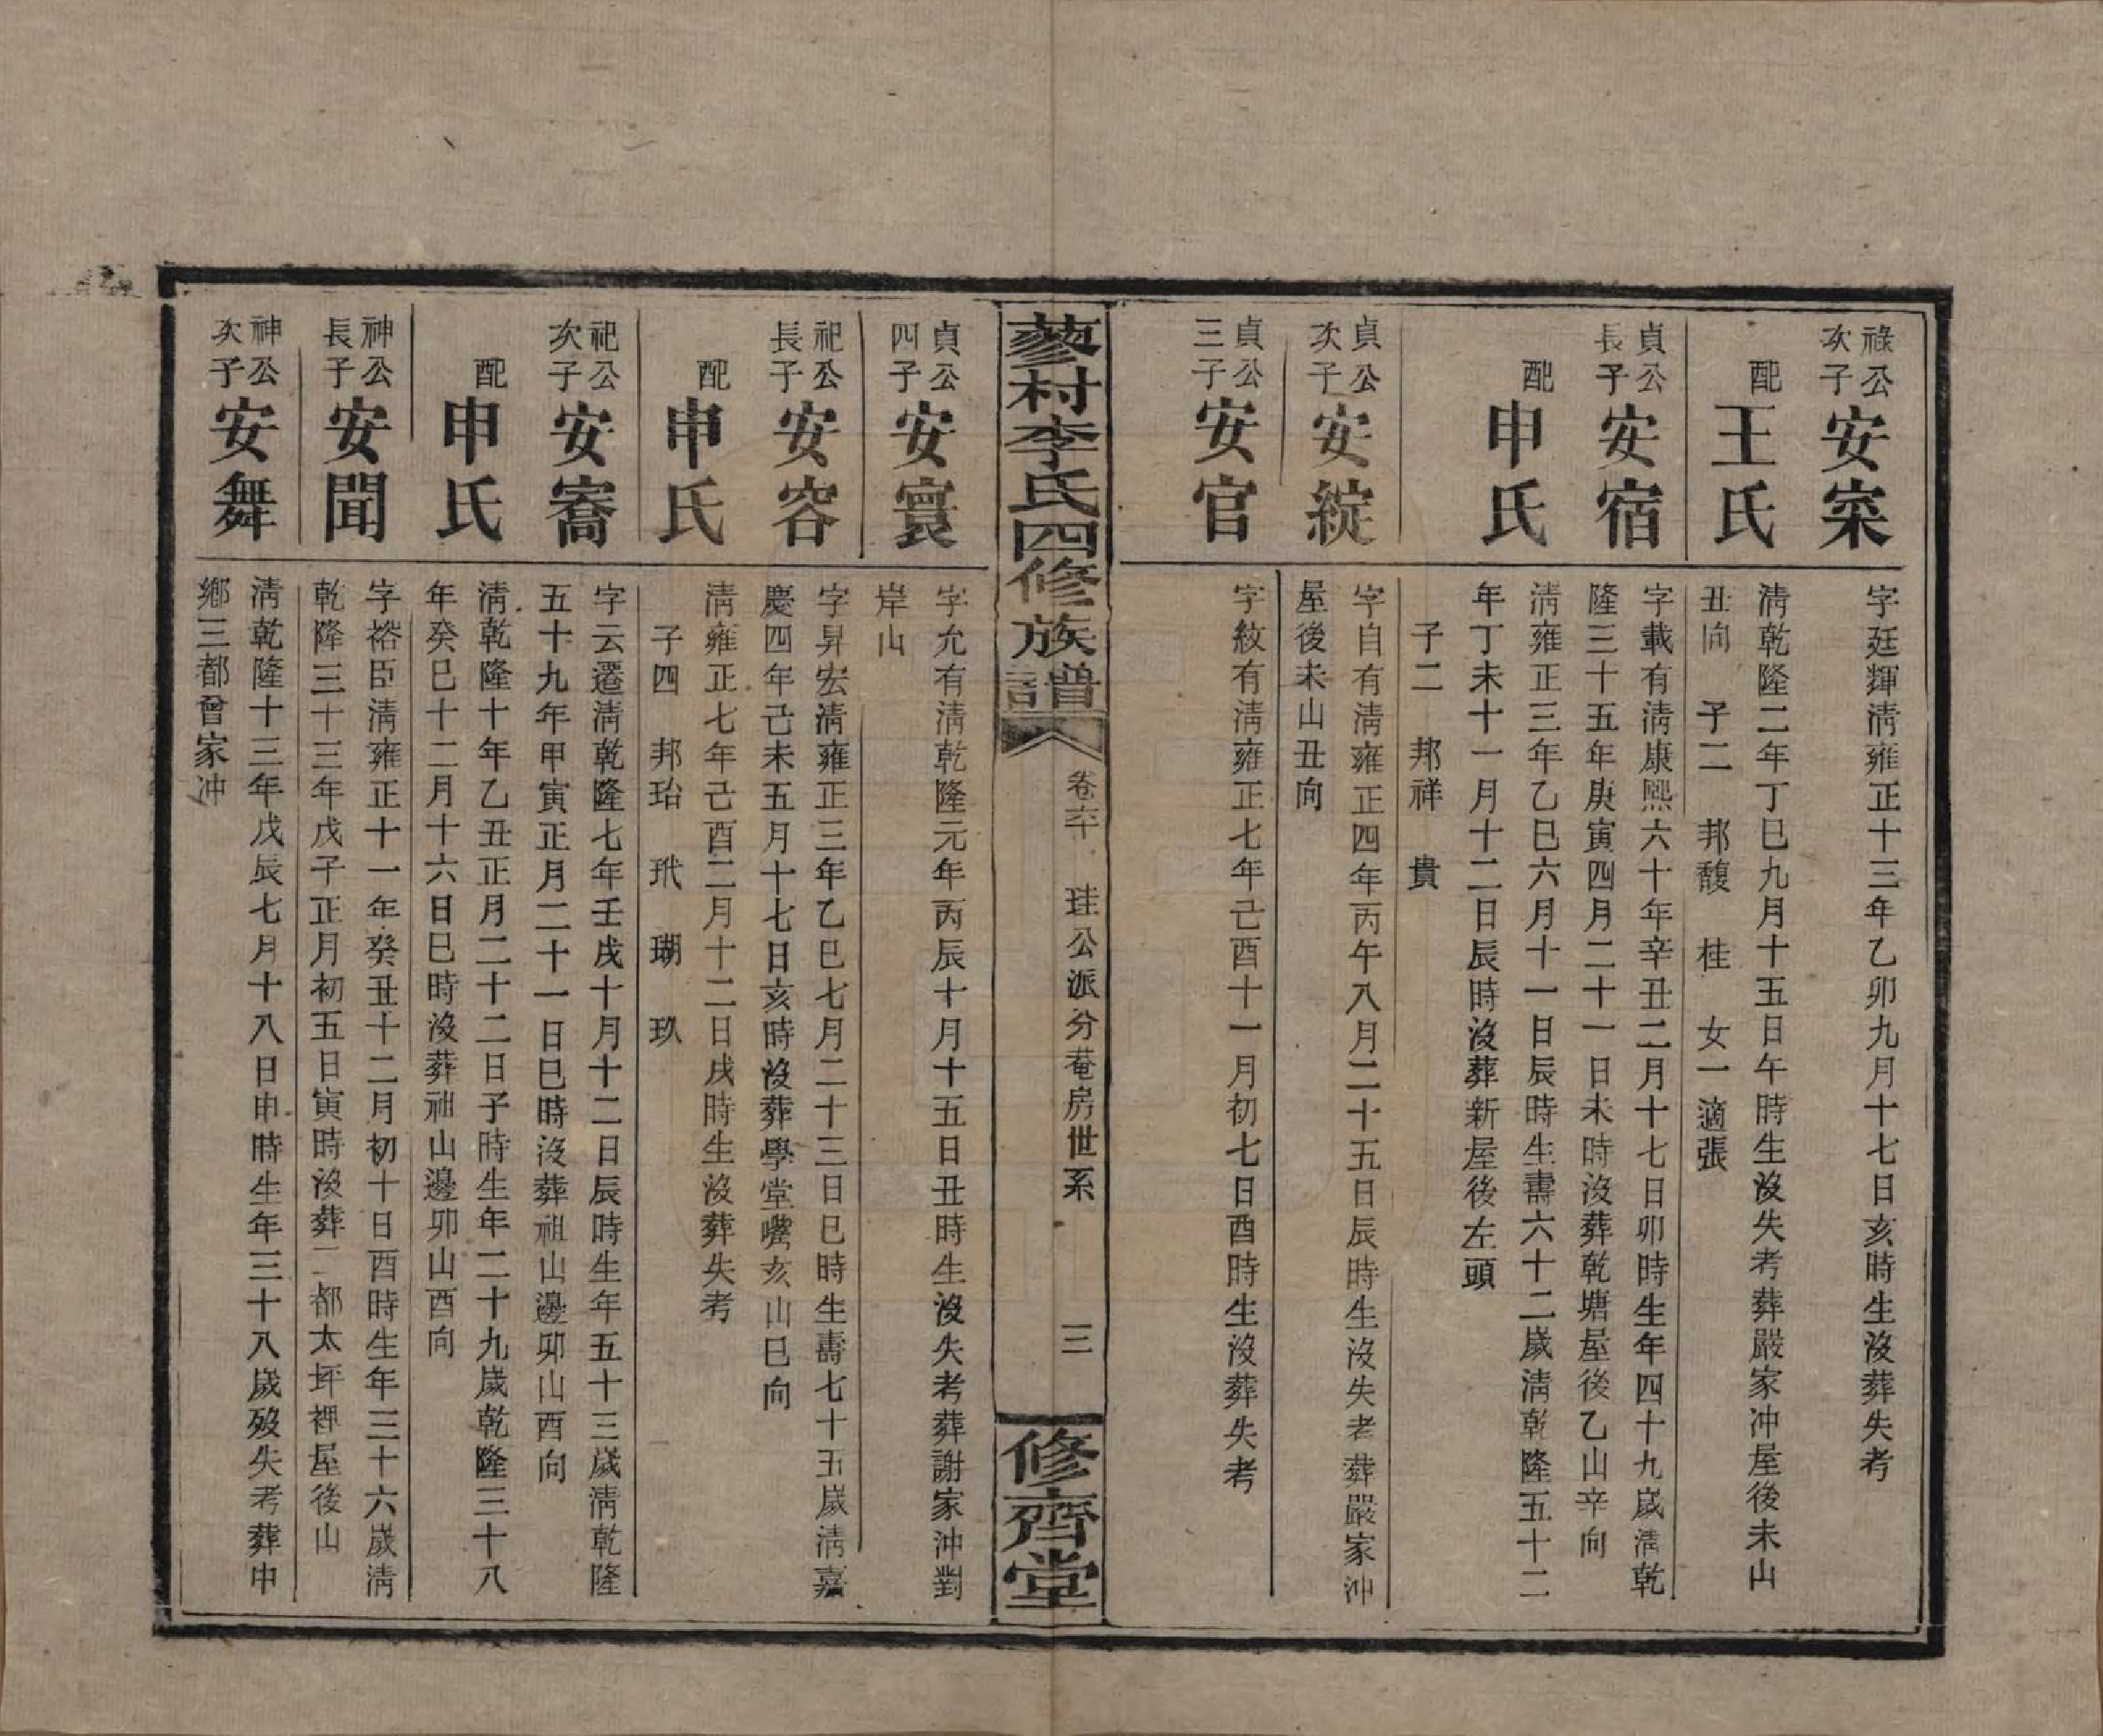 祿公次子 安寀
字廷輝淸雍正十三年乙卯九月十七日亥時生沒葬失考
配 王氏
淸乾隆二年丁巳九月十五日午時生沒失考葬嚴家冲屋後未山
丑向 子二 邦馥 桂 女一適張
貞公長子 安宿
字載有淸康熙六十年辛丑二月十七日卯時生年四十九歲淸乾
隆三十五年庚寅四月二十一日未時沒葬乾塘屋後乙山辛向
配 申氏
淸雍正三年乙巳六月十一日辰時生壽六十二歲淸乾隆五十二
年丁未十一月十二日辰時沒葬新屋後左頭
子二 邦祥 貴
貞公次子 安綻
字自有淸雍正四年丙午八月二十五日辰時生沒失考葬嚴家冲
屋後未山丑向
貞公三子 安官
字紋有淸雍正七年己酉十一月初七日酉時生沒葬失考
蓼村李氏四修族譜
卷六十 珪公派分菴房世系 三
修齊堂
貞公四子 安寰
字允有淸乾隆元年丙辰十月十五日丑時生沒失考葬謝家冲對
岸山
祀公長子 安容
字昇宏淸雍正三年乙巳七月二十三日巳時生壽七十五歲淸嘉
慶四年己未五月十七日亥時沒葬學堂嘴亥山巳向
配 申氏
淸雍正七年己酉二月十二日戌時生沒葬失考
子四 邦珆 玳 瑚 玖
祀公次子 安寯
字云遷淸乾隆七年壬戌十月十二日辰時生年五十三歲淸乾隆
五十九年甲寅正月二十一日巳時沒葬祖山邊卯山酉向
配 申氏
淸乾隆十年乙丑正月二十二日子時生年二十九歲乾隆三十八
年癸巳十二月十六日巳時沒葬祖山邊卯山酉向
神公長子 安聞
字裕臣淸雍正十一年癸丑十二月初十日酉時生年三十六歲淸
乾隆三十三年戊子正月初五日寅時沒葬二都太坪裡屋後山
神公次子 安舞
淸乾隆十三年戊辰七月十八日申時生年三十八歲歿失考葬中
鄉三都曾家冲